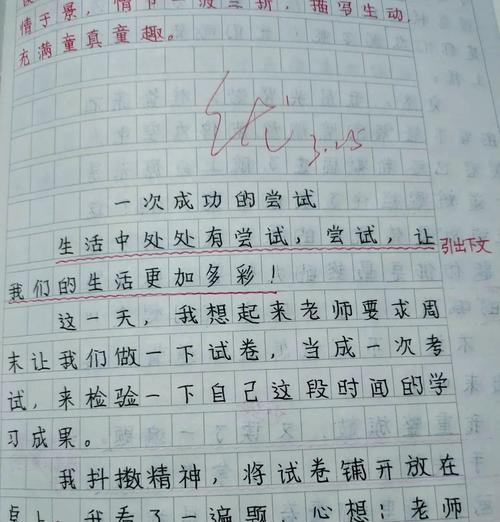 情于景，情节一波三折，描写生动，
充满童真童趣。
优 3.25
一次成功的尝试
生活中处处有尝试，尝试，让
引出下文
我们的生活更加多彩！
这一天，我想起来老师要求周
末让我们做一下试卷，当成一次考
试，来检验一下自己这段时间的学
习成果。
我抖擞精神，将试卷铺开放在
桌上，我看了一遍题，心想：老师